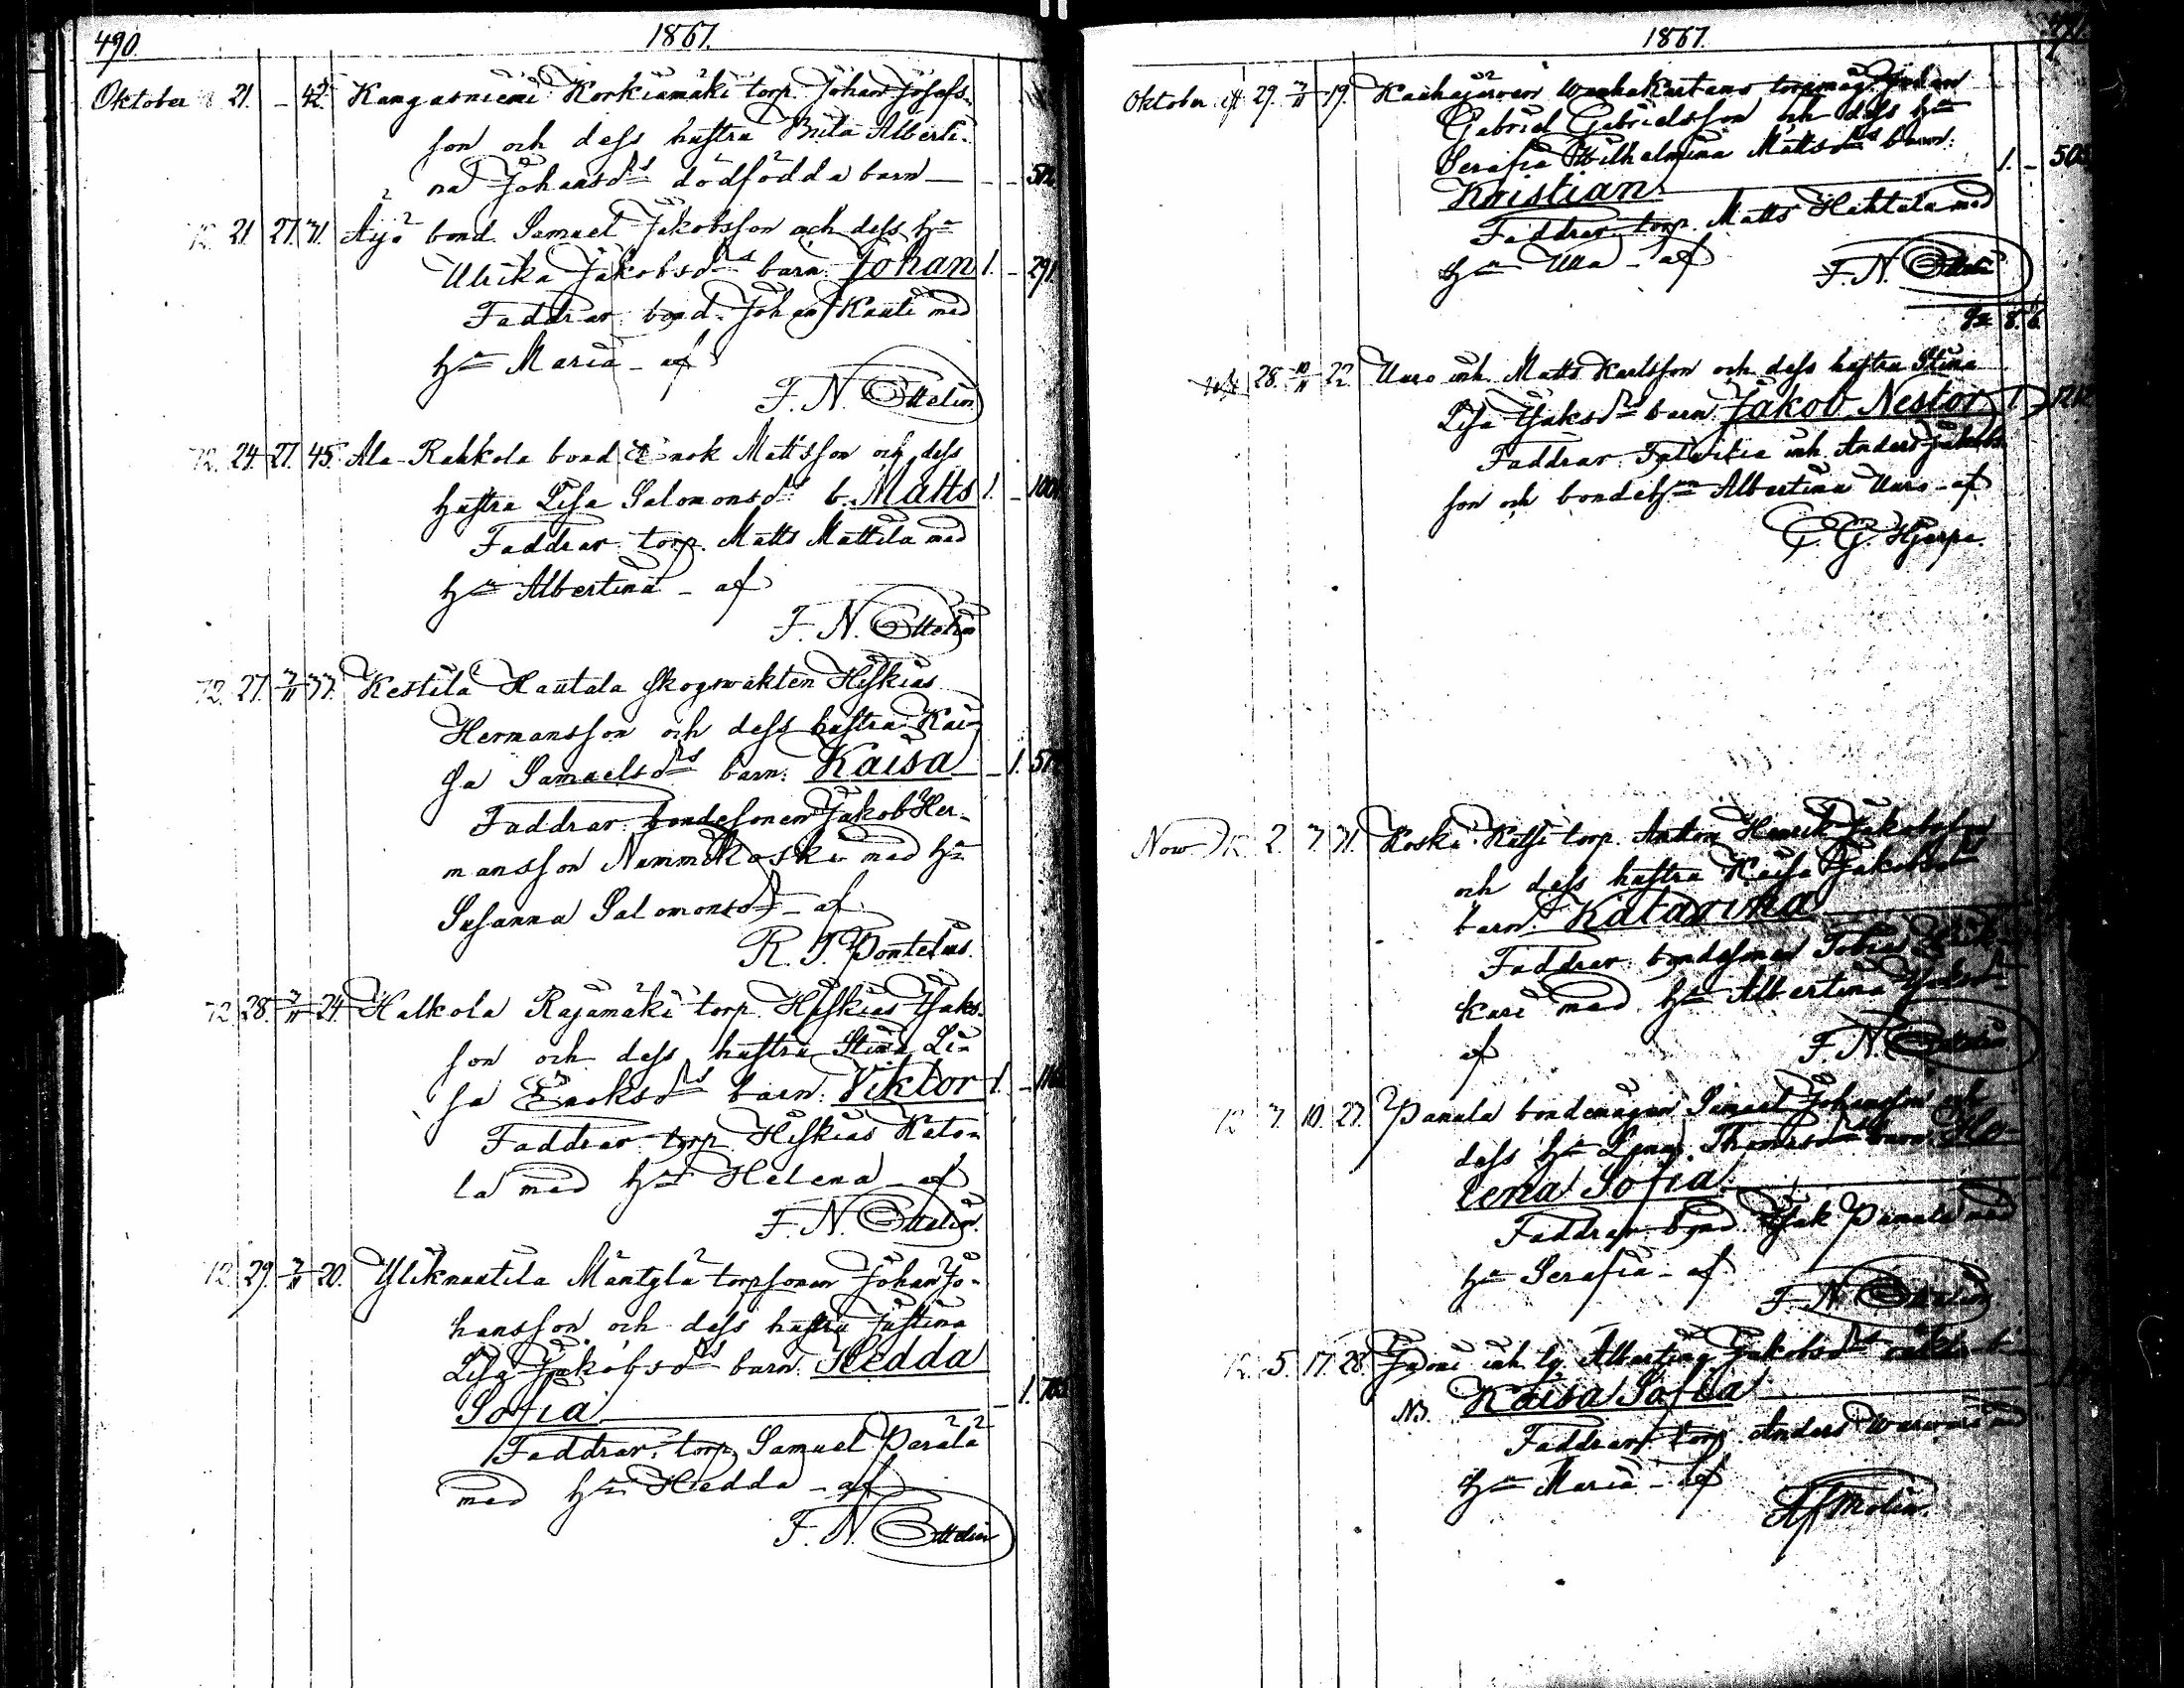 490. 1867.
Oktober 21. – 42. Kangasniemi Korkiamäki torp. Johan Josefs-
son och dess hustru Brita Alberti-
na Johansdrs dödfödda barn — – –
21 27. 31. Äijö bond. Samuel Jakobsson och dess hu
Ulrika Jakobsdrs barn: Johan 1. – 291.
Faddrar: bond. Johan Kauti med
hu Maria – af
F. N. Ottelin
24. 27. 45. Ala-Rahkola bond Enok Mattsson och dess
hustru Lisa Salomonsdrs b. Matts 1. –
Faddrar torp. Matts Mattila med
hu Albertina – af
F. N. Ottelin
27. 3/11 37. Kestilä Hautala skogwakten Hiskias
Hermansson och dess hustru Kai-
sa Samuelsdrs barn: Kaisa – 1.
Faddrar: bondesonen Jakob Her-
mansson Nammikoski med hu
Susanna Salomonsdr – af
R. T. Pontelius.
28. 3/11 24. Halkola Rajamäki torp. Hiskias Isaks-
son och dess hustru Stina Li-
sa Enoksdrs barn: Viktor 1. –
Faddrar torp Hiskias Kato-
la med hu Helena – af
F. N. Ottelin.
29. 3/11 20. Yliknuutila Mäntylä torpsonen Johan Jo-
hansson och dess hustru Justina
Lisa Jakobsdrs barn: Hedda
Sofia – 1.
Faddrar: torp Samuel Perälä
med hu Hedda – af
F. N. Ottelin
1867.
Oktober 29. 3/11 19. Kauhajärwen Wanhakartano torpmåg. Johan
Gabriel Gabrielsson och dess hu
Serafia Wilhelmina Mattsdrs barn:
Kristian 1. –
Faddrar torp. Matts Hahtala med
hu Ulla – af F. N. Ottelin
28. 10/11 22. Uuro inh. Matts Karlsson och dess hustru Stina
Lisa Isaksdrs barn: Jakob Nestor 1.
Faddrar: inh. Anders Jakobs-
son och bondehun Albertina Uuro – af
G. G. Hjerpe.
Now. 2. 3. 31. Koski-Kätti torp. Anton Henrik Jakobsson
och dess hustru Kaisa Jakobsdrs
barn: Katarina
Faddrar: bondesonen Tobias
kari med hu Albertina
af F. N. Ottelin
3. 10. 27. Panula bondemågen Samuel Johansson och
dess hu Thomasdrs barn: He-
lena Sofia
Faddrar bond. Isak Panula med
hu Serafia – af
F. N. Ottelin
5. 17. 28. inh. lg. Albertina Jakobsdrs oäkta b:
N3. Kaisa Sofia
Faddrar: torp. Anders
hu Maria – af